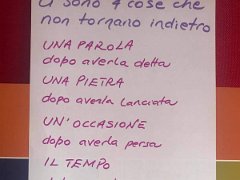 Ci sono 4 cose che
non tornano indietro
UNA PAROLA
dopo averla detta
UNA PIETRA
dopo averla lanciata
UN'OCCASIONE
dopo averla persa
IL TEMPO